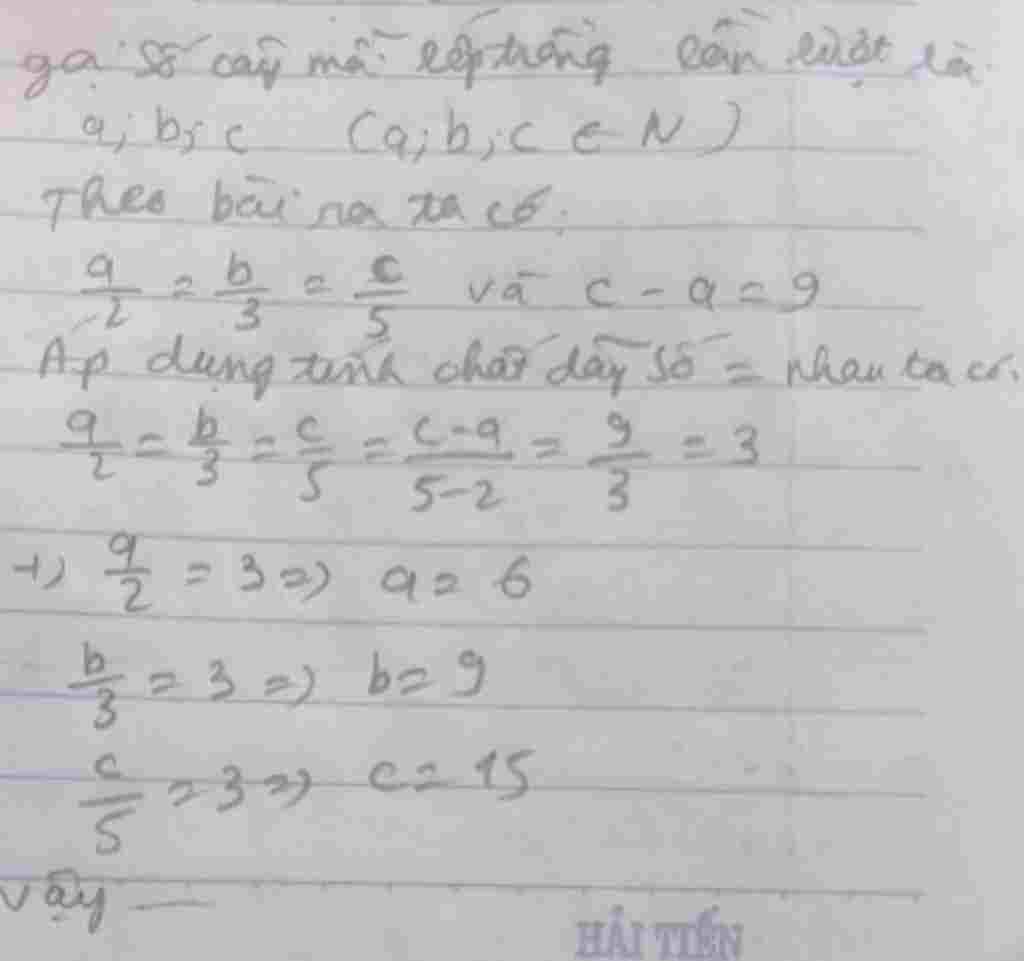 gọi số cây mỗi lớp trồng lần lượt là
a; b; c (a; b; c ∈ N)
Theo bài ra ta có:
a/2 = b/3 = c/5 và c - a = 9
Áp dụng tính chất dãy số = nhau ta có.
a/2 = b/3 = c/5 = c-a/5-2 = 9/3 = 3
+) a/2 = 3 => a = 6
b/3 = 3 => b = 9
c/5 = 3 => c = 15
vậy —
HẢI TIẾN